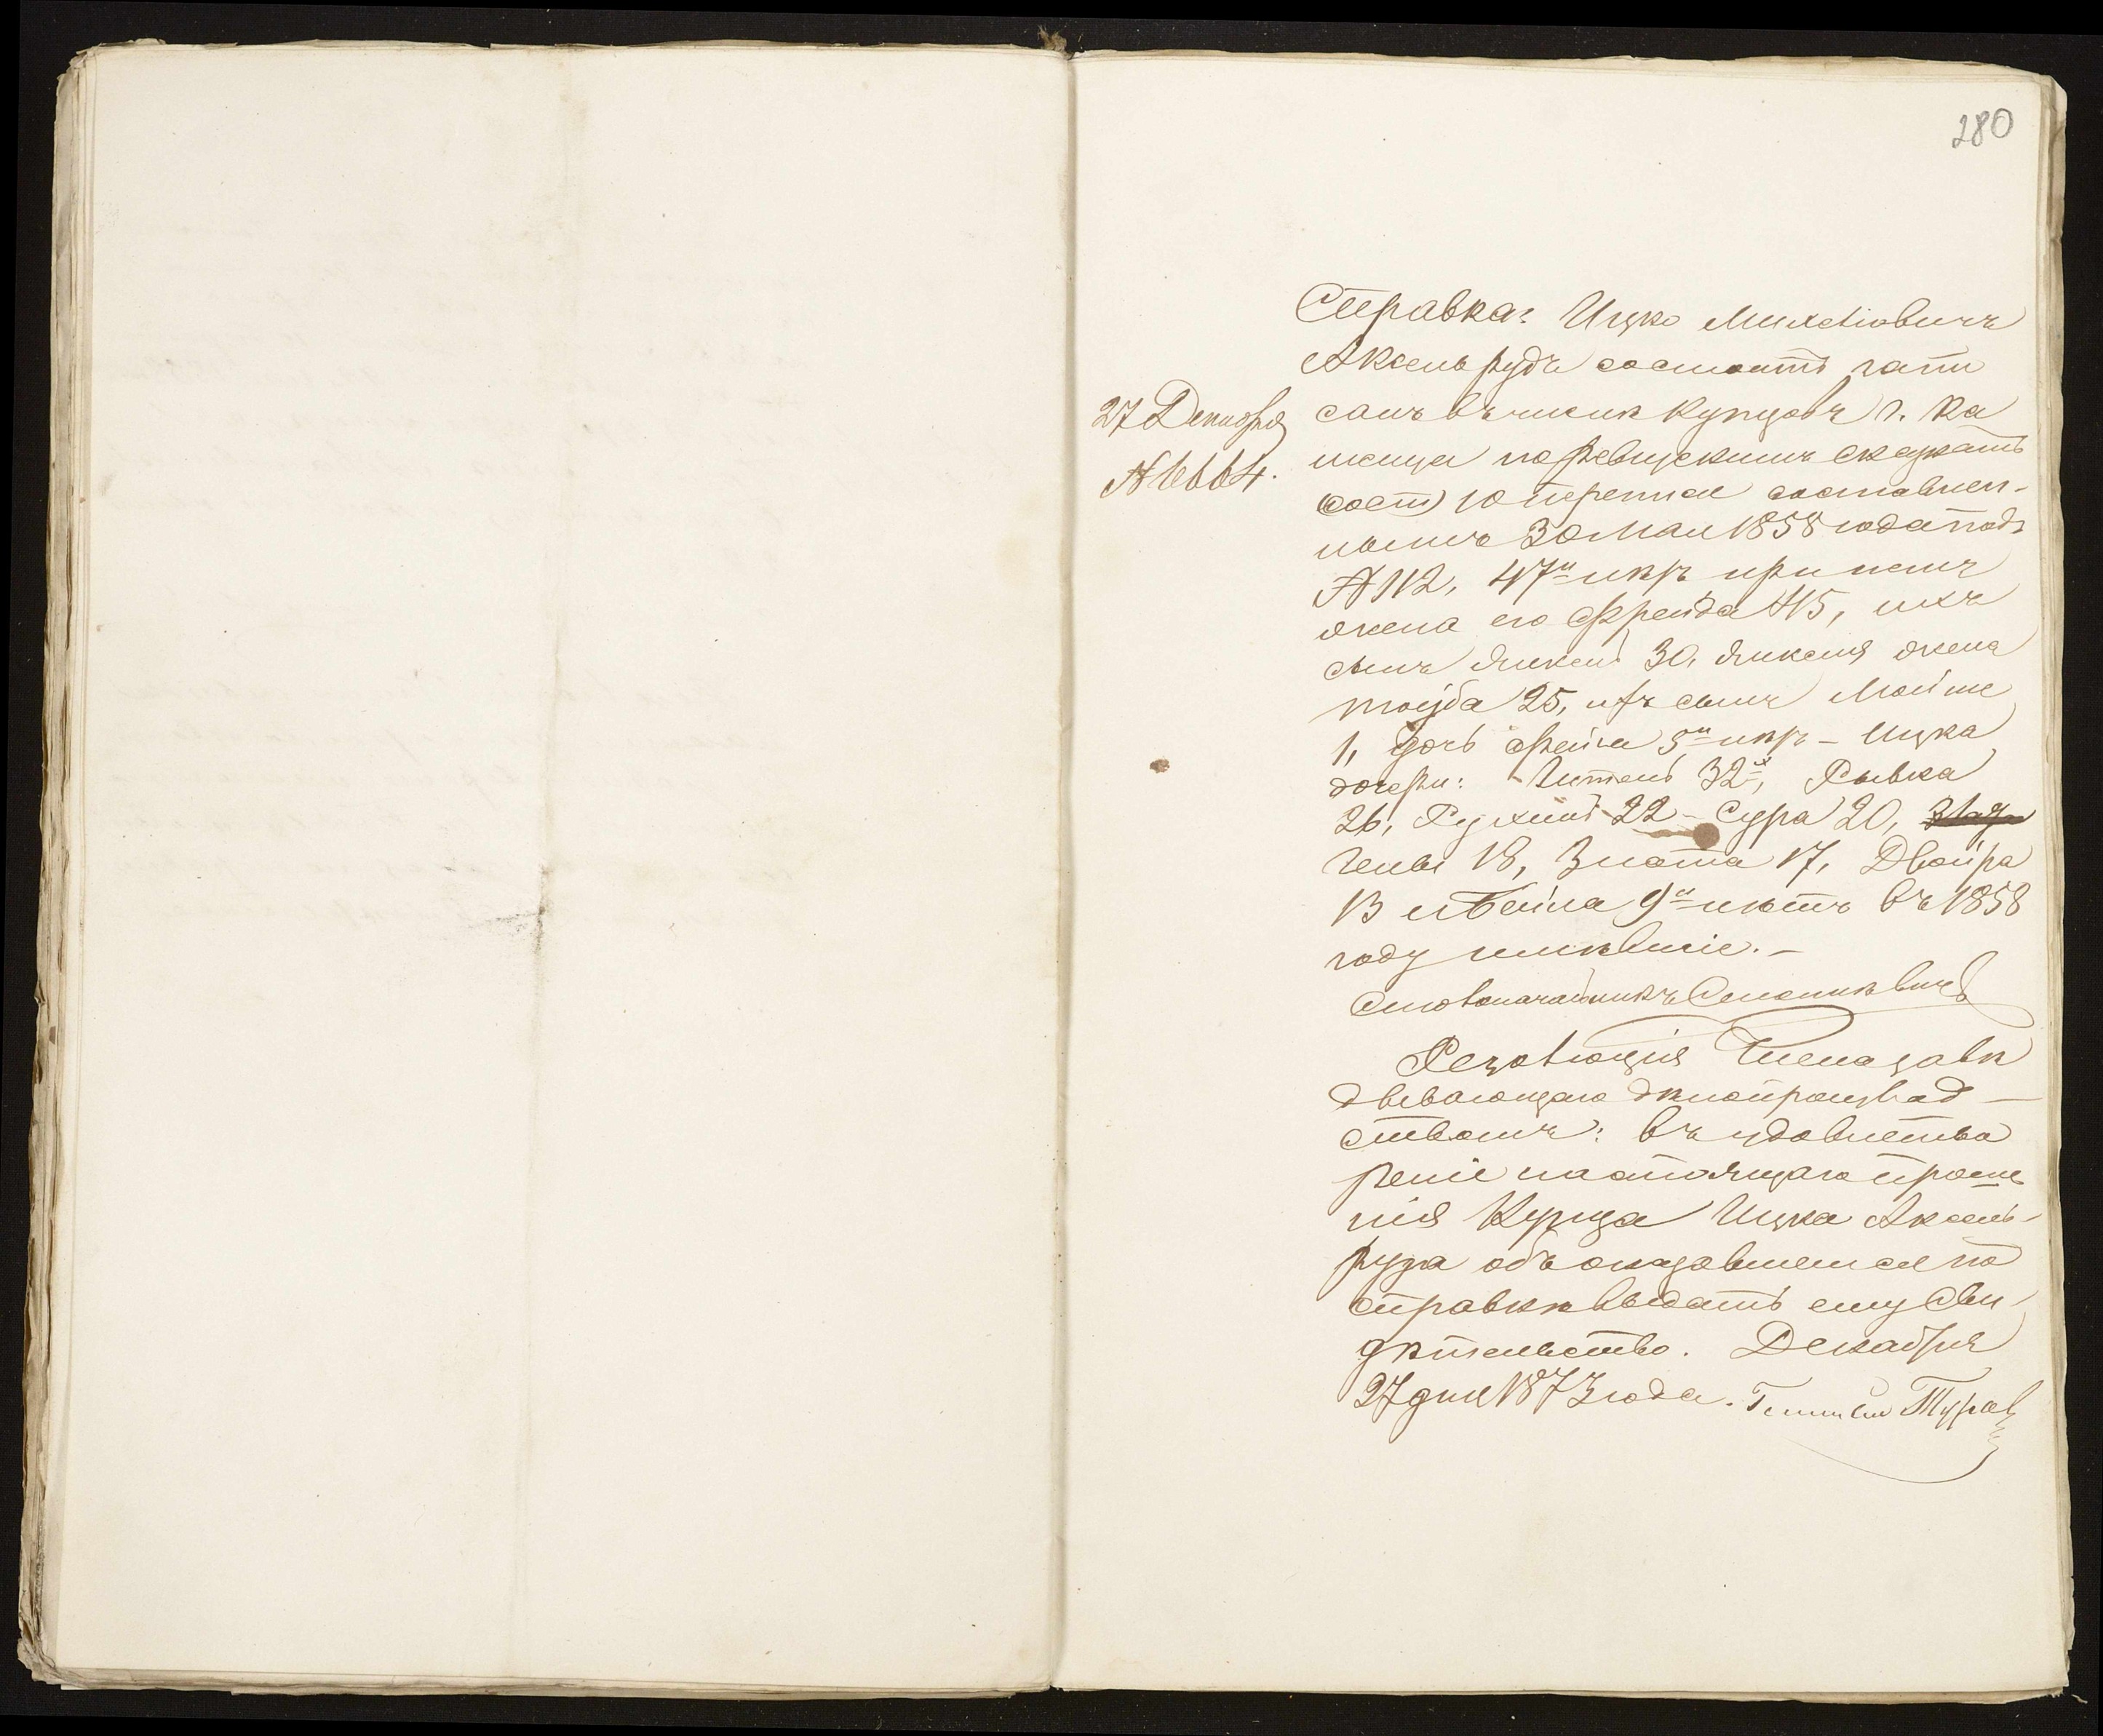 280
Справка: Ицко Михелiовичъ
Аксельрудъ состоитъ запи
санъ въ числѣ купцовъ г. Ка
менца по ревизскимъ сказкамъ
(сост) 10 переписи составлен-
нымъ 30 Мая 1858 года подъ
№ 112, 47и лѣтъ при немъ
жена его Фрейда 45, ихъ
сынъ Янкель 30, Янкеля жена
Тойба 25, ихъ сынъ Мойше
1, дочь Фейга 5и лѣтъ – Ицка
дочери: Гитель 32х, Рывка
26, Рухлъ 22 – Сура 20,
Геня 18, Злота 17, Двойра
13 и Бейла 9и лѣтъ въ 1858
году имѣвшіе. –
Столоначальникъ
27 Декабря
№ 6664.
Резолюція Члена завѣ
дывающаго дѣлопроизвод-
ствомъ: въ удовлетво
реніе настоящаго проше
нія Купца Ицка Аксель-
руда объ оказавшемся по
справкѣ выдать ему Сви-
дѣтельство. Декабря
27 дня 1873 года.